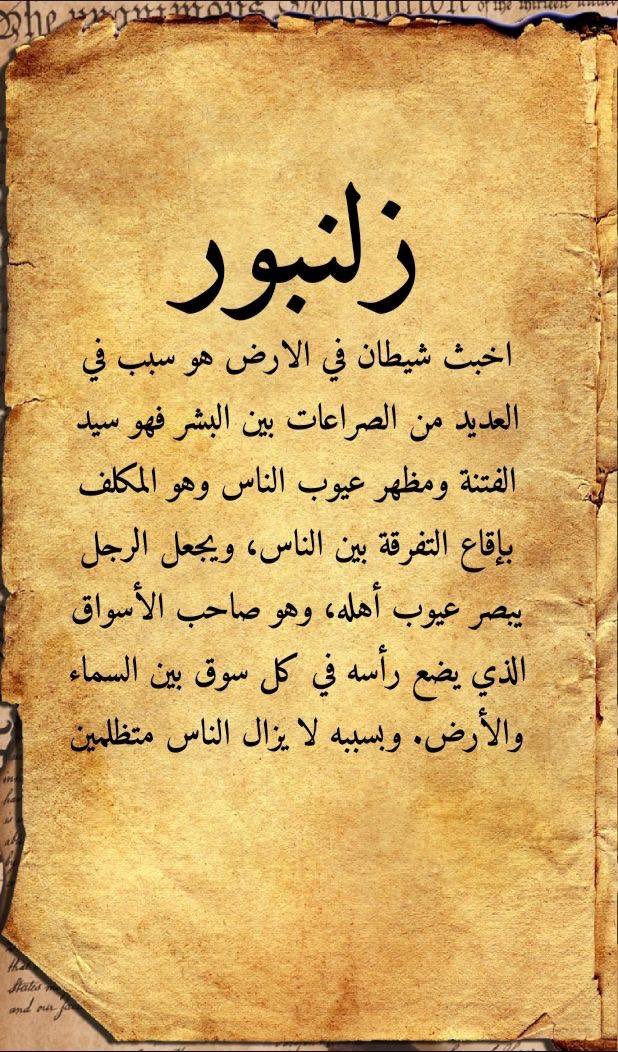 The unanimous Declaration of the thirteen united
زلنبور
اخبث شيطان في الارض هو سبب في
العديد من الصراعات بين البشر فهو سيد
الفتنة ومظهر عيوب الناس وهو المكلف
بإقاع التفرقة بين الناس، ويجعل الرجل
يبصر عيوب أهله، وهو صاحب الأسواق
الذي يضع رأسه في كل سوق بين السماء
والأرض. وبسببه لا يزال الناس متظلمين
that
States
and our